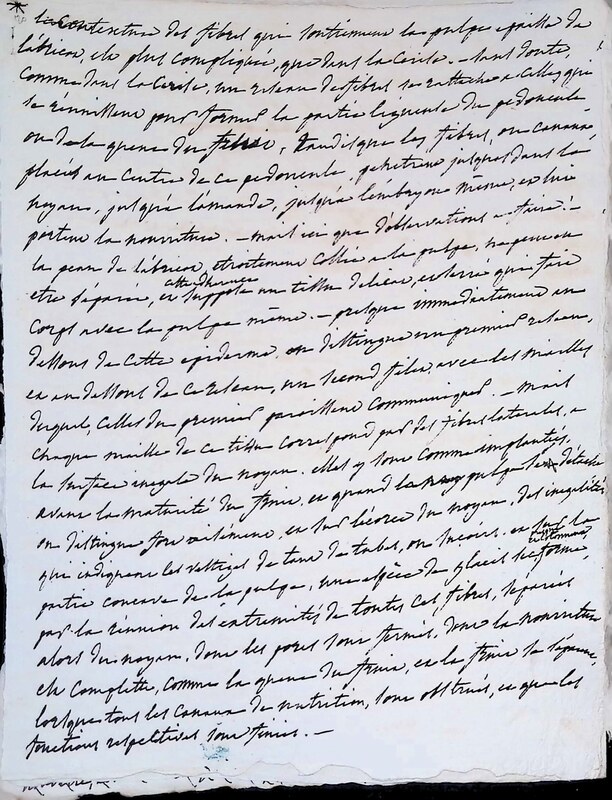 contexture des fibres qui soutiennent la pulpe epaisse de
l'abricot, est plus compliquée, que dans la Cerise. - sans doute,
Comme dans la Cerise, un reseau de fibres se rattache a Celles qui
se réunissent pour former la partie ligneuse du pedoncule
ou de la queue du fruit, tandisque les fibres, ou canaux,
placés au Centre de ce pedoncule, penetrent jusques dans le
noyau, jusqu'a l'amande, jusqu'a l'embryon même, et lui
portent la nourriture. - mais ici que d'observations a faire! -
la peau de l'abricot, etroitement Collée a la pulpe, ne peut en
etre séparée, et cette adherence suppose un tissu delicat, et serré qui fait
Corps avec la pulpe même. - presque immediatement au
dessous de Cette epiderme on distingue un premier reseau,
et au dessous de ce reseau, un second filet, avec les mailles
duquel, celles du premier paroissent communiquer. - mais
chaque maille de ce tissu correspond par des fibres laterales, a
la surface inegale du noyau. elles y sont comme implantées,
avant la maturité du fruit. et quand la pulpe s'en détache
on distingue fort aisément, et sur l'écorce du noyau, des inegalités
qui indiquent les vestiges de tant de tubes, ou sucoirs. et sur la
partie concave de la pulpe, une espèce de glacis se forme
par la réunion des extremités de toutes ces fibres, séparées
alors du noyau, dont les pores sont fermés, dont la nourriture
est complette, comme la queue du fruit, et le fruit se séparent,
lorsque tous les canaux de nutrition, sont obstrués, et que les
fonctions respectives sont finies. -